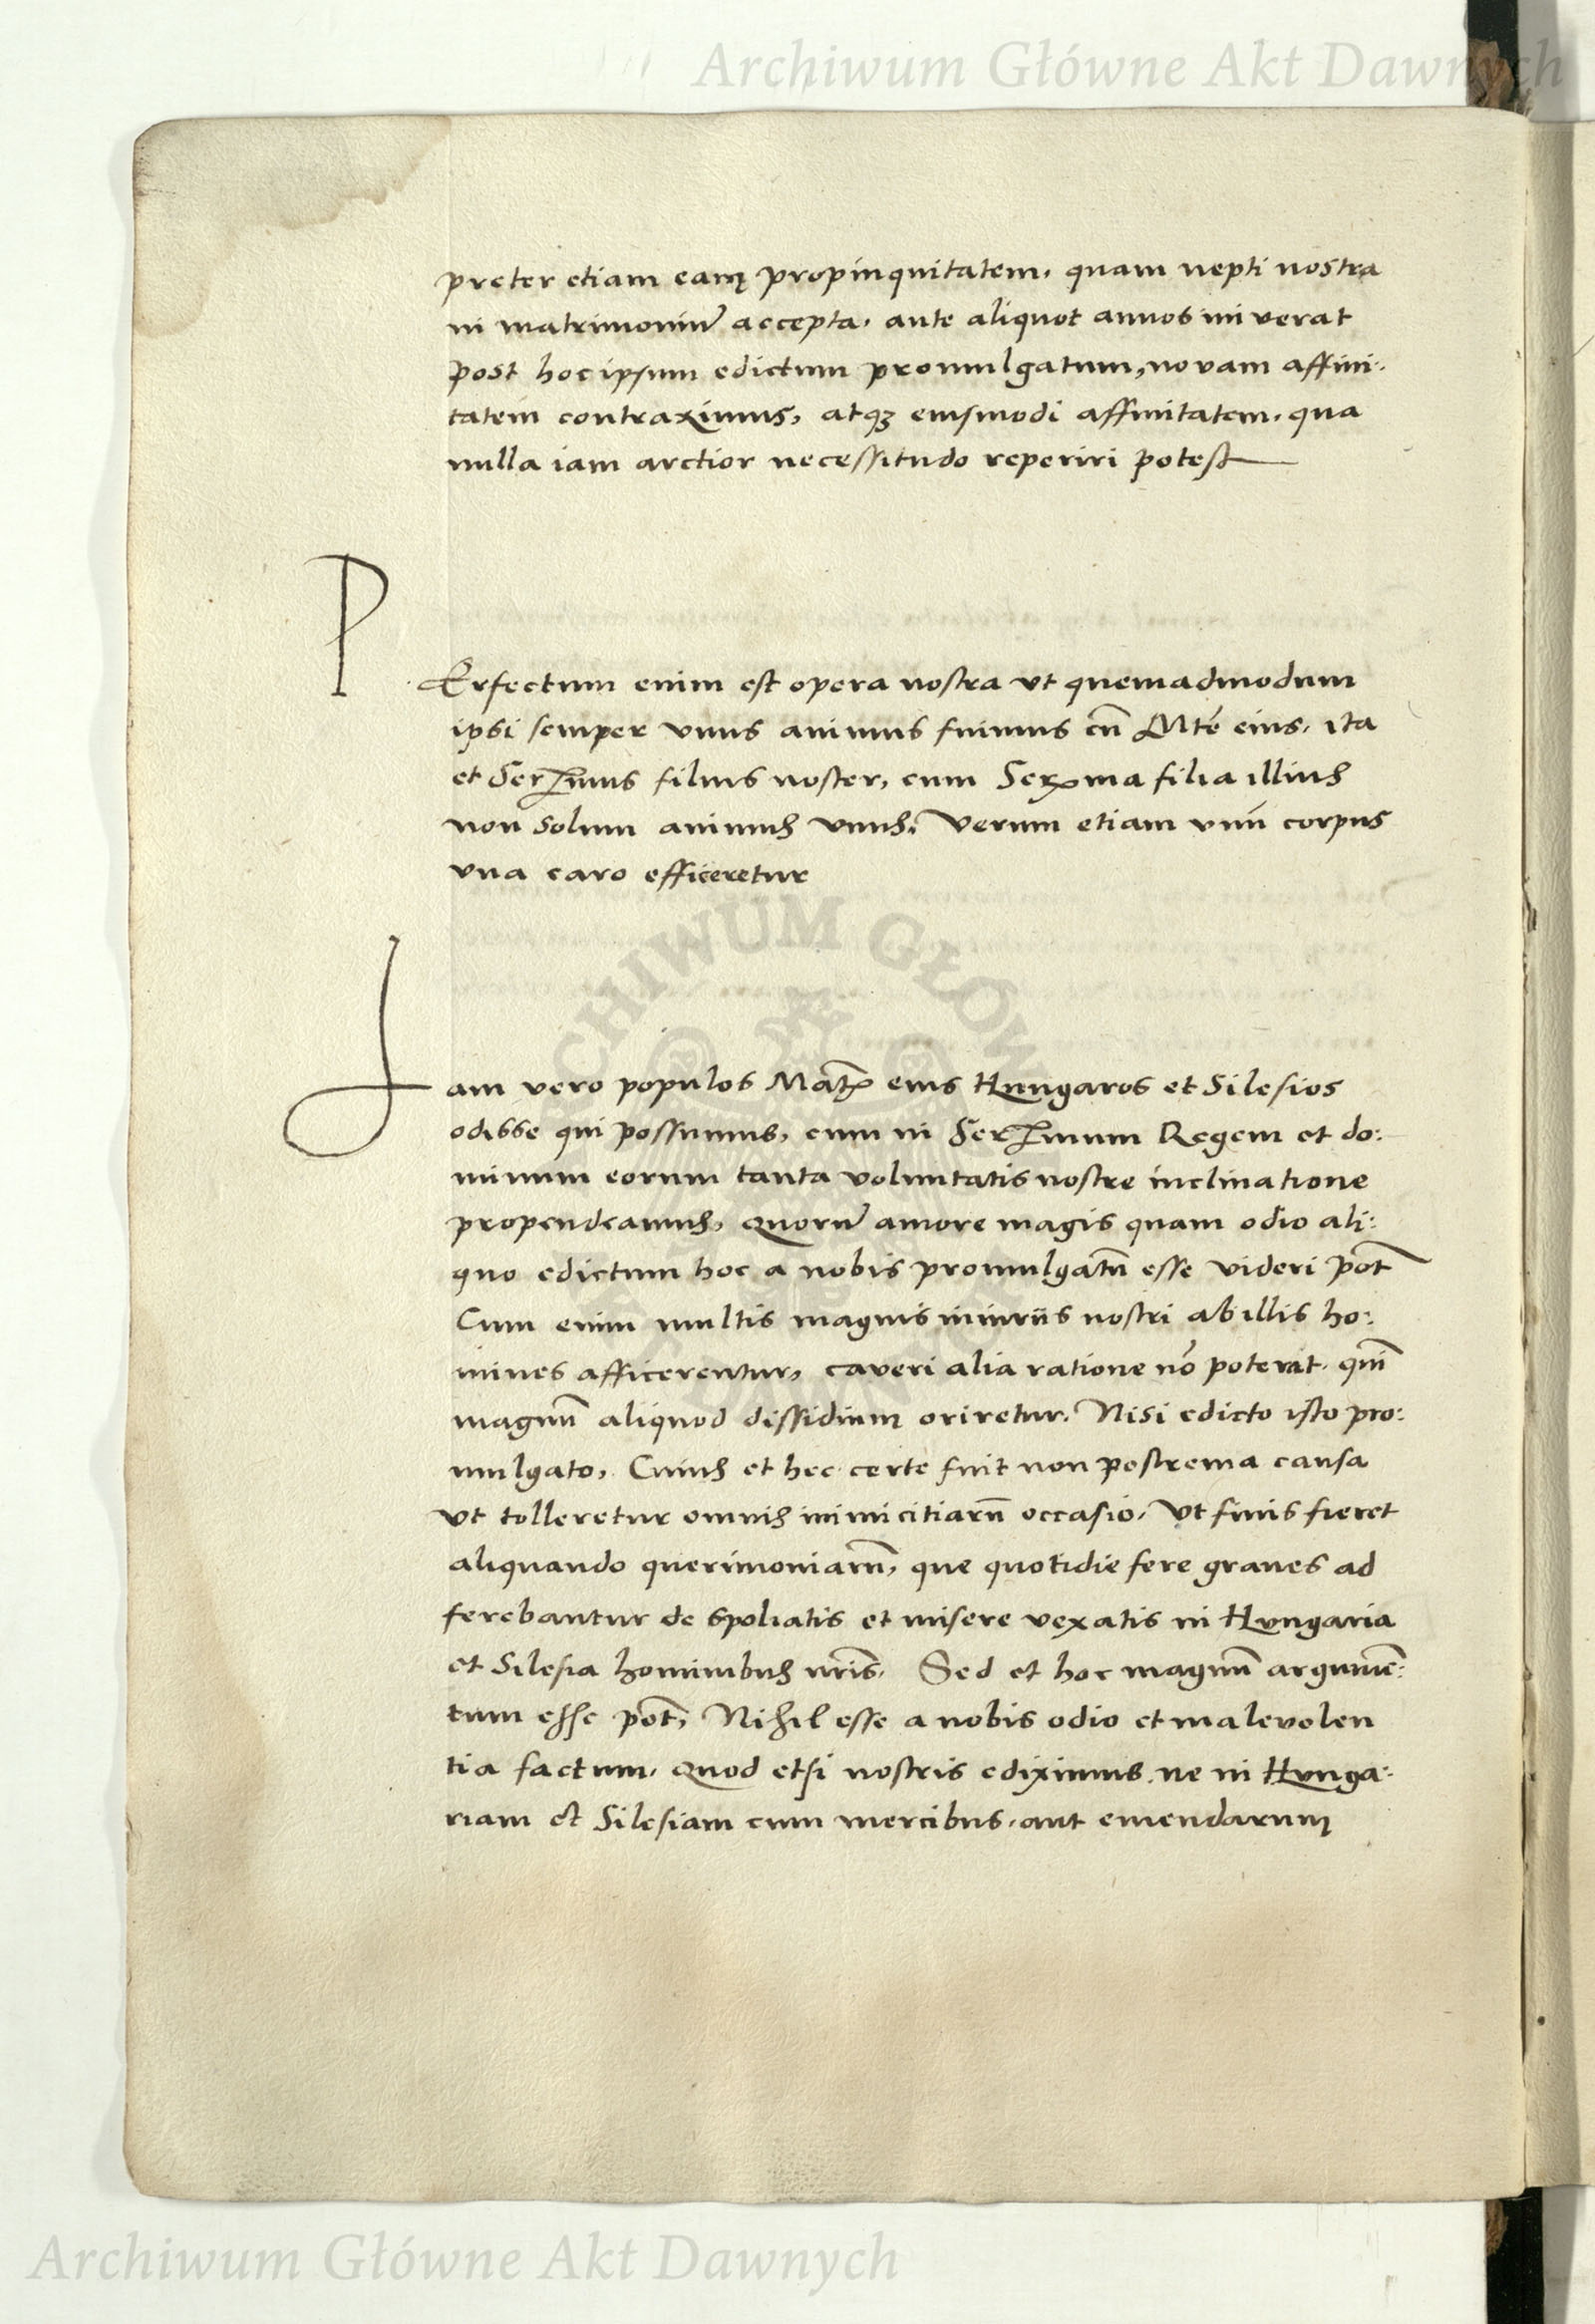 Archiwum Główne Akt Dawnych
preter etiam eam propinquitatem, quam nepti nostra
in matrimoniũ accepta, ante aliquot annos iniverat
post hoc ipsum edictum promulgatum, novam affini.
tatem contraximus, atqʒ eiusmodi affinitatem, qua
nulla iam arctior necessitudo reperiri potest
P
Erfectum enim est opera nostra vt quemadmodum
ipsi semper vnus animus fuimus cũ Mte eius, ita
et Sermus filius noster, cum Serma filia illius
non solum animus vnus, Verum etiam vnũ corpus
vna caro efficeretur
ARCHIWUM GŁÓWNE
J
am vero populos Matis eius Hungaros et Silesios
odisse qui possumus, cum in Sermum Regem et do:
minum eorum tanta voluntatis nostre inclinatione
propendeamus, quorũ amore magis quam odio ali:
quo edictum hoc a nobis promulgatũ esse videri pot
Cum enim multis magnis iniuriis nostri ab illis ho:
mines afficerentur, caveri alia ratione nõ poterat, quĩ
magnũ aliquod dissidium oriretur, Nisi edicto isto pro:
mulgato, Cuius et hec certe fuit non postrema causa
vt tolleretur omnis inimicitiarũ occasio, Vt finis fieret
aliquando querimoniarũ, que quotidie fere graves ad
ferebantur de spoliatis et misere vexatis in Hvngaria
et Silesia hominibus nr̃is, Sed et hoc magnũ argumẽ:
tum esse pot, Nihil esse a nobis odio et malevolen
tia factum, quod etsi nostris ediximus, ne in Hvnga:
riam et Silesiam cum mercibus, aut emendarum
Archiwum Główne Akt Dawnych